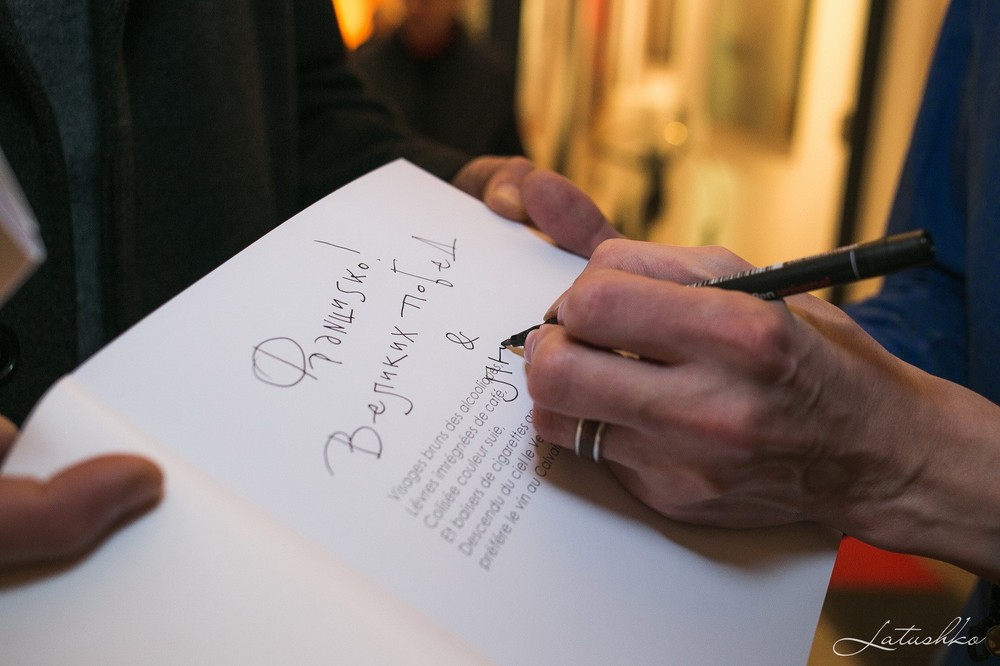 Франциско!
Великих побед
&
Visages bruns des alcooliques
Lèvres imrégnées de café
Colisée couleur suie,
Et baisers de cigarettes
Descendu du ciel le
préfère le vin au
Latushko